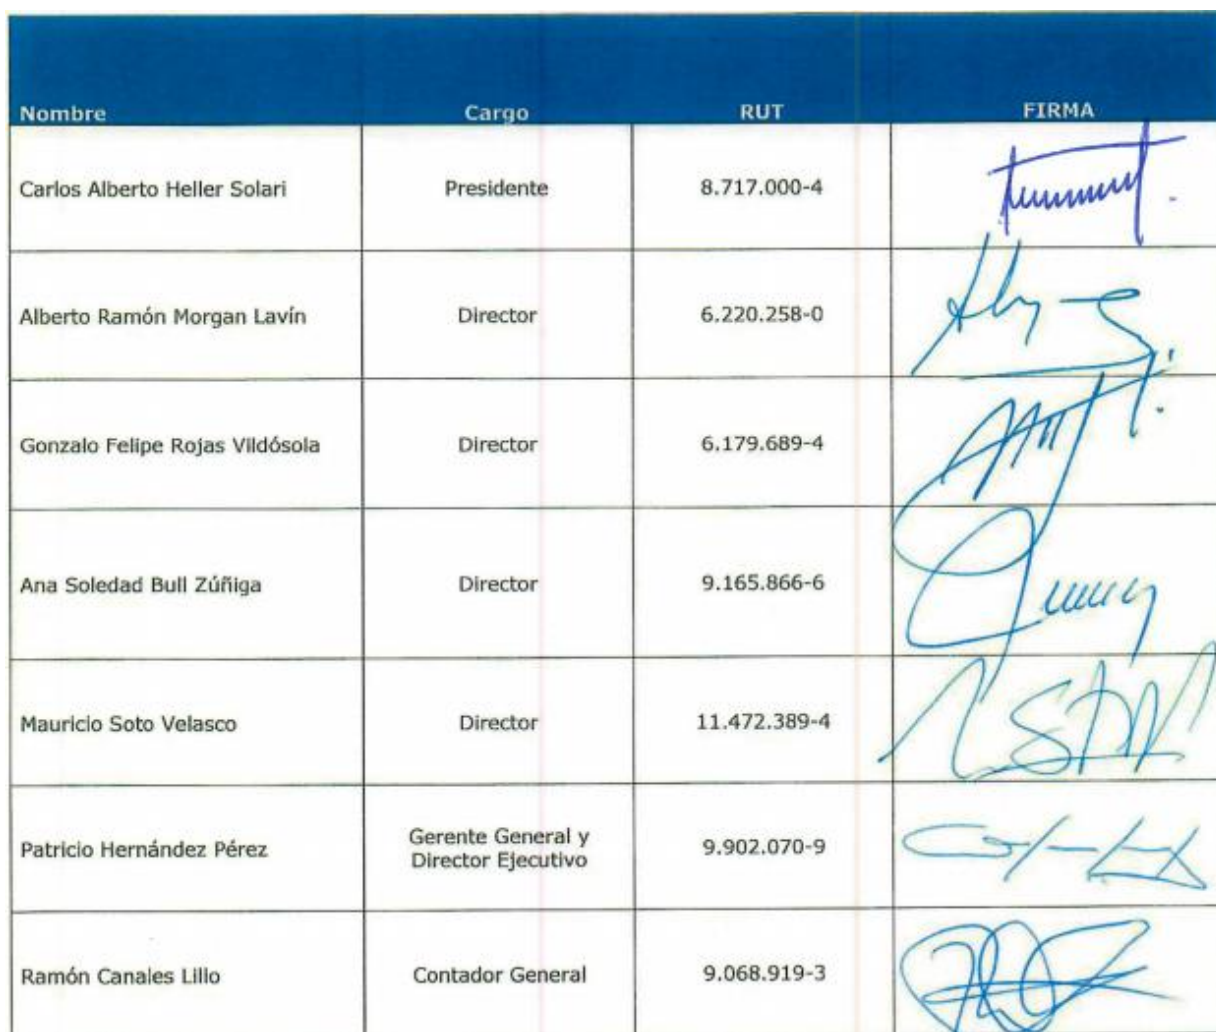 Nombre Cargo RUT FIRMA
Carlos Alberto Heller Solari Presidente 8.717.000-4
Alberto Ramón Morgan Lavín Director 6.220.258-0
Gonzalo Felipe Rojas Vildósola Director 6.179.689-4
Ana Soledad Bull Zúñiga Director 9.165.866-6
Mauricio Soto Velasco Director 11.472.389-4
Patricio Hernández Pérez Gerente General y
Director Ejecutivo 9.902.070-9
Ramón Canales Lillo Contador General 9.068.919-3